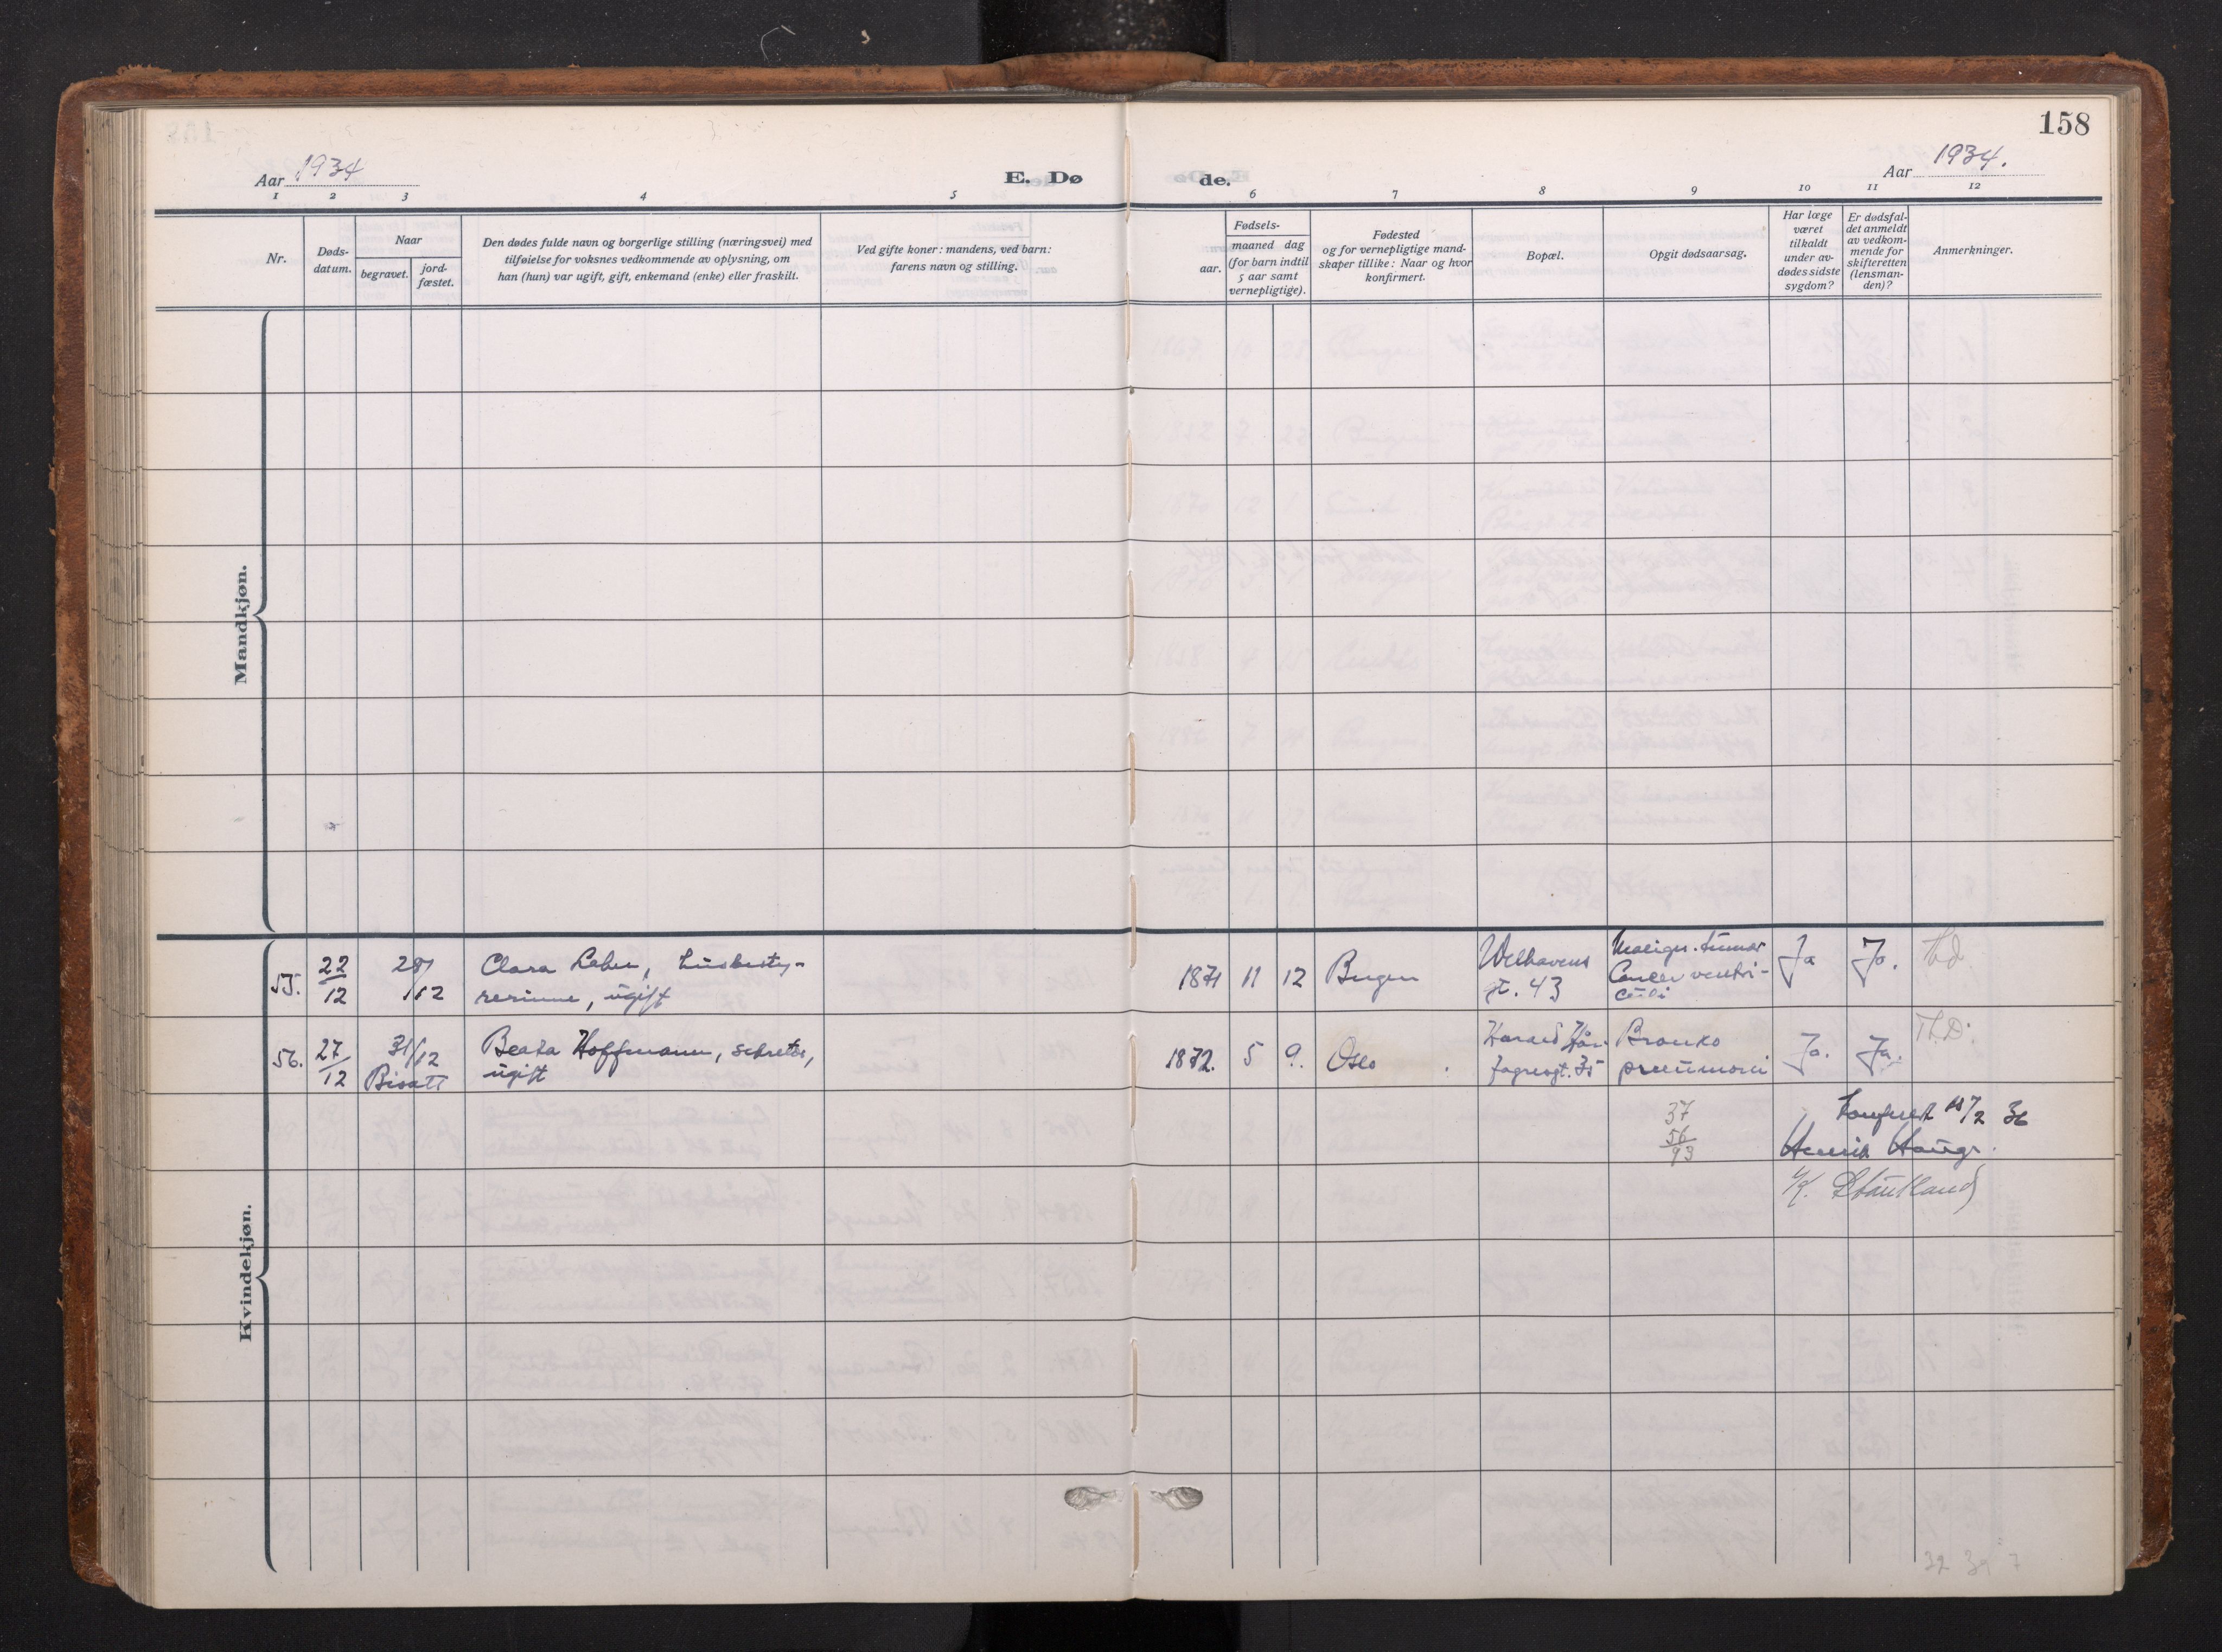 158
Aar 1934
E. Dø
de.
Aar 1934.
1 2 3 4 5 6 7 8 9 10 11 12
Nr.
Døds-
datum.
Naar
begravet.
jord-
fæstet.
Den dødes fulde navn og borgerlige stilling (næringsvei) med
tilføielse for voksnes vedkommende av oplysning, om
han (hun) var ugift, gift, enkemand (enke) eller fraskilt.
Ved gifte koner: mandens, ved barn:
farens navn og stilling.
Fødsels-
aar.
maaned dag
(for barn indtil
5 aar samt
vernepligtige).
Fødested
og for vernepligtige mand-
skaper tillike: Naar og hvor
konfirmert.
Bopæl.
Opgit dødsaarsag.
Har læge
været
tilkaldt
under av-
dødes sidste
sygdom?
Er dødsfal-
det anmeldt
av vedkom-
mende for
skifteretten
(lensman-
den)?
Anmerkninger.
Mandkjøn.
Kvindekjøn.
55.
22/12
28/12
Clara, husbesty-
rerinne, ugift
1871 11 12 Bergen
Welhavens
gt. 43
Malign. tumor
Cancer ventri-
culi
Ja
Ja.
56.
27/12
31/12
Bisatt
Beata Hoffmann, sekretær,
ugift
1872. 5 9. Oslo
Harald Hår-
fagresgt. 35
Bronko
pneumoni
Ja.
Ja.
Th.D.
37
56
93
36
Henrik Hauge.